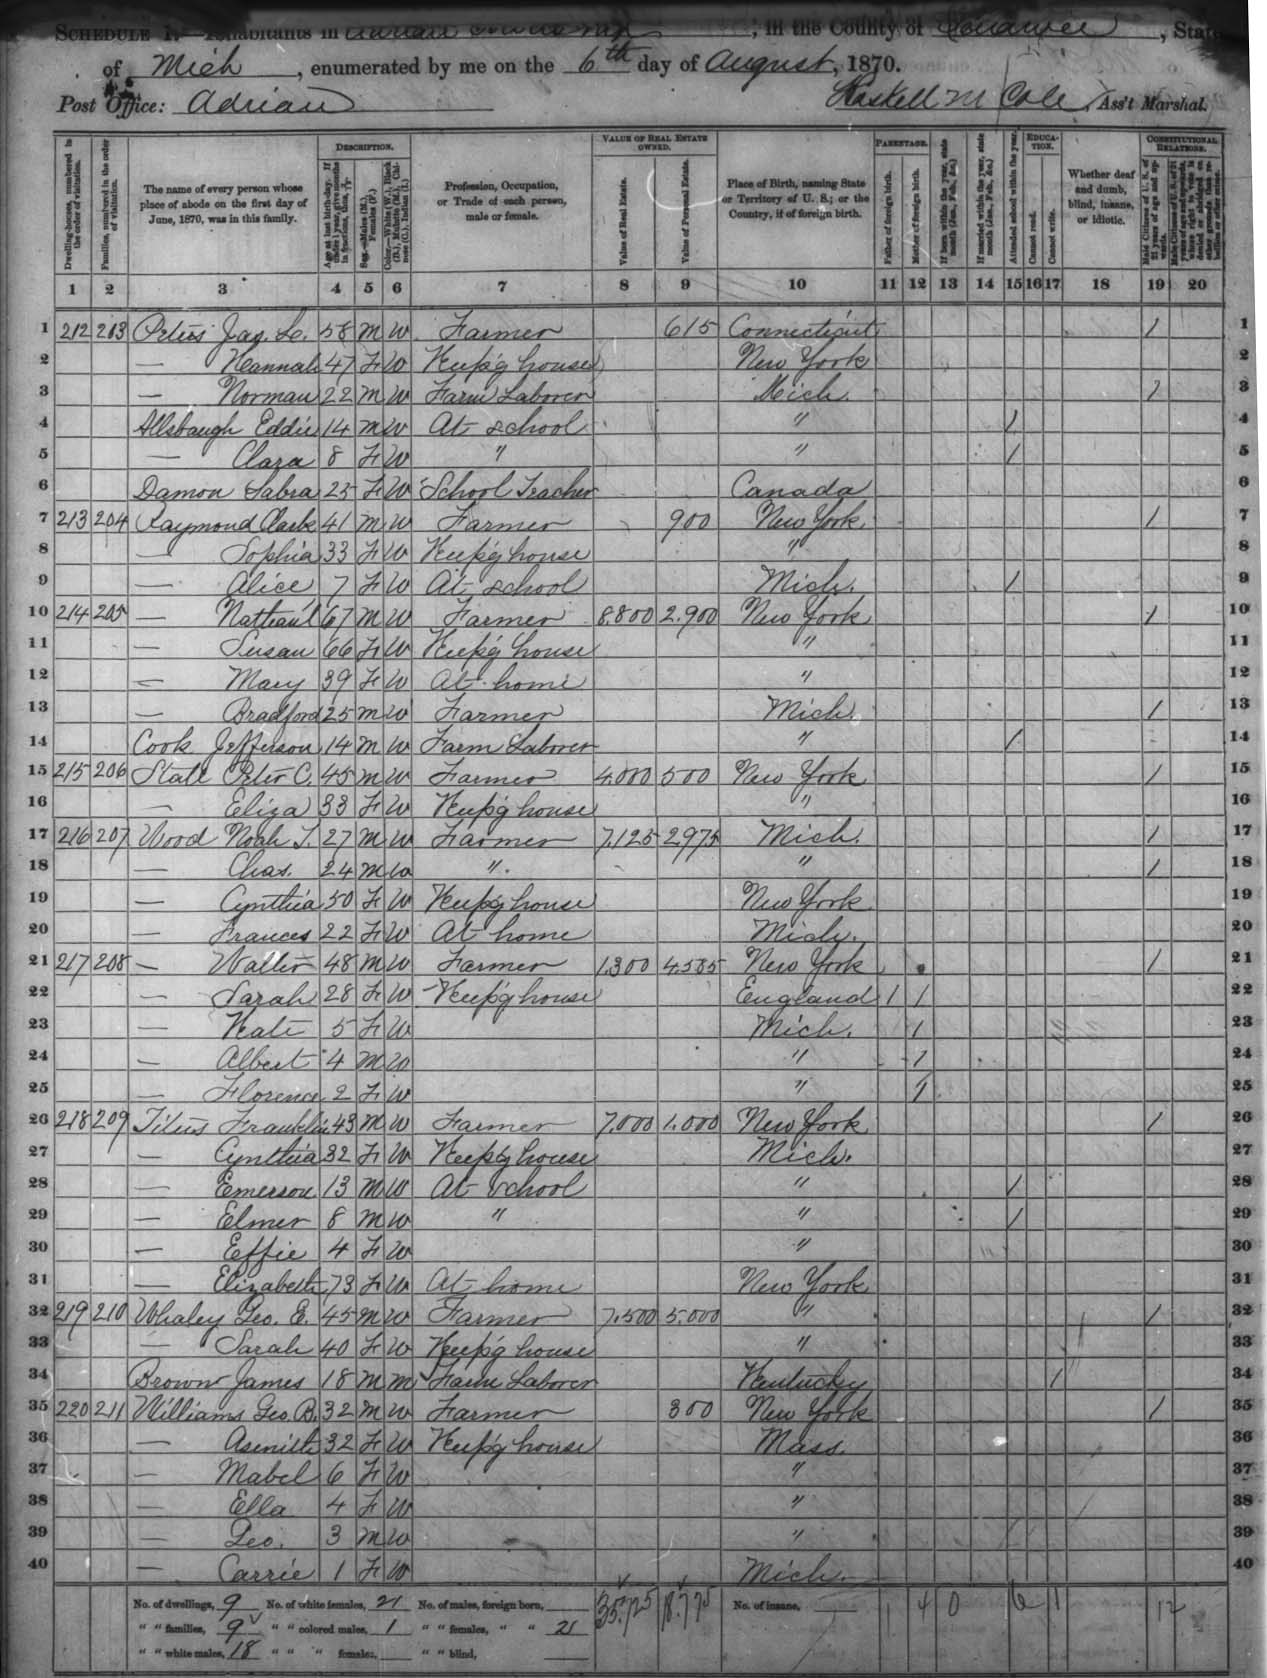 SCHEDULE 1.—Inhabitants in Adrian Township, in the County of Lenawee, State
of Mich, enumerated by me on the 6th day of August, 1870.
Post Office: Adrian Haskell M Cole, Ass't Marshal.
DESCRIPTION. VALUE OF REAL ESTATE OWNED. PARENTAGE. EDUCATION. CONSTITUTIONAL RELATIONS.
Dwelling-houses, numbered in the order of visitation.
Families, numbered in the order of visitation.
The name of every person whose place of abode on the first day of June, 1870, was in this family.
Age at last birth-day. If under 1 year, give months in fractions, thus, 3/12
Sex.—Males (M.), Females (F.)
Color.—White (W.), Black (B.), Mulatto (M.), Chinese (C.), Indian (I.)
Profession, Occupation, or Trade of each person, male or female.
Value of Real Estate.
Value of Personal Estate.
Place of Birth, naming State or Territory of U. S.; or the Country, if of foreign birth.
Father of foreign birth.
Mother of foreign birth.
If born within the year, state month (Jan., Feb., &c.)
If married within the year, state month (Jan., Feb., &c.)
Attended school within the year.
Cannot read.
Cannot write.
Whether deaf and dumb, blind, insane, or idiotic.
Male Citizens of U. S. of 21 years of age and upwards.
Male Citizens of U. S. of 21 years of age and upwards, whose right to vote is denied or abridged on other grounds than rebellion or other crime.
1 2 3 4 5 6 7 8 9 10 11 12 13 14 15 16 17 18 19 20
1 212 213 Jas. L. 58 M W Farmer 615 Connecticut 1 1
2 — Hannah 47 F W Keep'g house New York 2
3 — Norman 22 M W Farm Laborer Mich. 1 3
4 Allsbaugh Eddie 14 M W At school " 1 4
5 — Clara 8 F W " " 1 5
6 Damon Sabra 25 F W School Teacher Canada 6
7 213 204 Raymond Clark 41 M W Farmer 900 New York 1 7
8 — Sophia 33 F W Keep'g house " 8
9 — Alice 7 F W At school Mich. 1 9
10 214 205 — Nathan'l 67 M W Farmer 8.800 2.900 New York 1 10
11 — Susan 66 F W Keep'g house " 11
12 — Mary 39 F W At home " 12
13 — Bradford 25 M W Farmer Mich. 1 13
14 Cook Jefferson 14 M W Farm Laborer " 1 14
15 215 206 Stall Peter C. 45 M W Farmer 4.000 500 New York 1 15
16 — Eliza 33 F W Keep'g house " 16
17 216 207 Wood Noah T. 27 M W Farmer 7.125 2975 Mich. 1 17
18 — Chas. 24 M W " " 1 18
19 — Cynthia 50 F W Keep'g house New York 19
20 — Frances 22 F W At home Mich. 20
21 217 208 — Walter 48 M W Farmer 1.300 4.585 New York 1 21
22 — Sarah 28 F W Keep'g house England 1 1 22
23 — Kate 5 F W Mich. 1 23
24 — Albert 4 M W " 1 24
25 — Florence 2 F W " 1 25
26 218 209 Titus Franklin 43 M W Farmer 7.000 1.000 New York 1 26
27 — Cynthia 32 F W Keep'g house Mich. 27
28 — Emerson 13 M W At school " 1 28
29 — Elmer 8 M W " " 1 29
30 — Effie 4 F W " 30
31 — Elizabeth 73 F W At home New York 31
32 219 210 Whaley Geo. E. 45 M W Farmer 7.500 5.000 " 1 32
33 — Sarah 40 F W Keep'g house " 33
34 Brown James 18 M M Farm Laborer Kentucky 1 34
35 220 211 Williams Geo. B. 32 M W Farmer 300 New York 1 35
36 — Asenith 32 F W Keep'g house Mass. 36
37 — Mabel 6 F W " 37
38 — Ella 4 F W " 38
39 — Geo. 3 M W " 39
40 — Carrie 1 F W Mich. 40
No. of dwellings, 9 No. of white females, 21 No. of males, foreign born, 35.725 18.775 No. of insane, 1 4 0 6 1 12
" " families, 9 " " colored males, 1 " " females, " " 2
" " white males, 18 " " " females, " " blind,